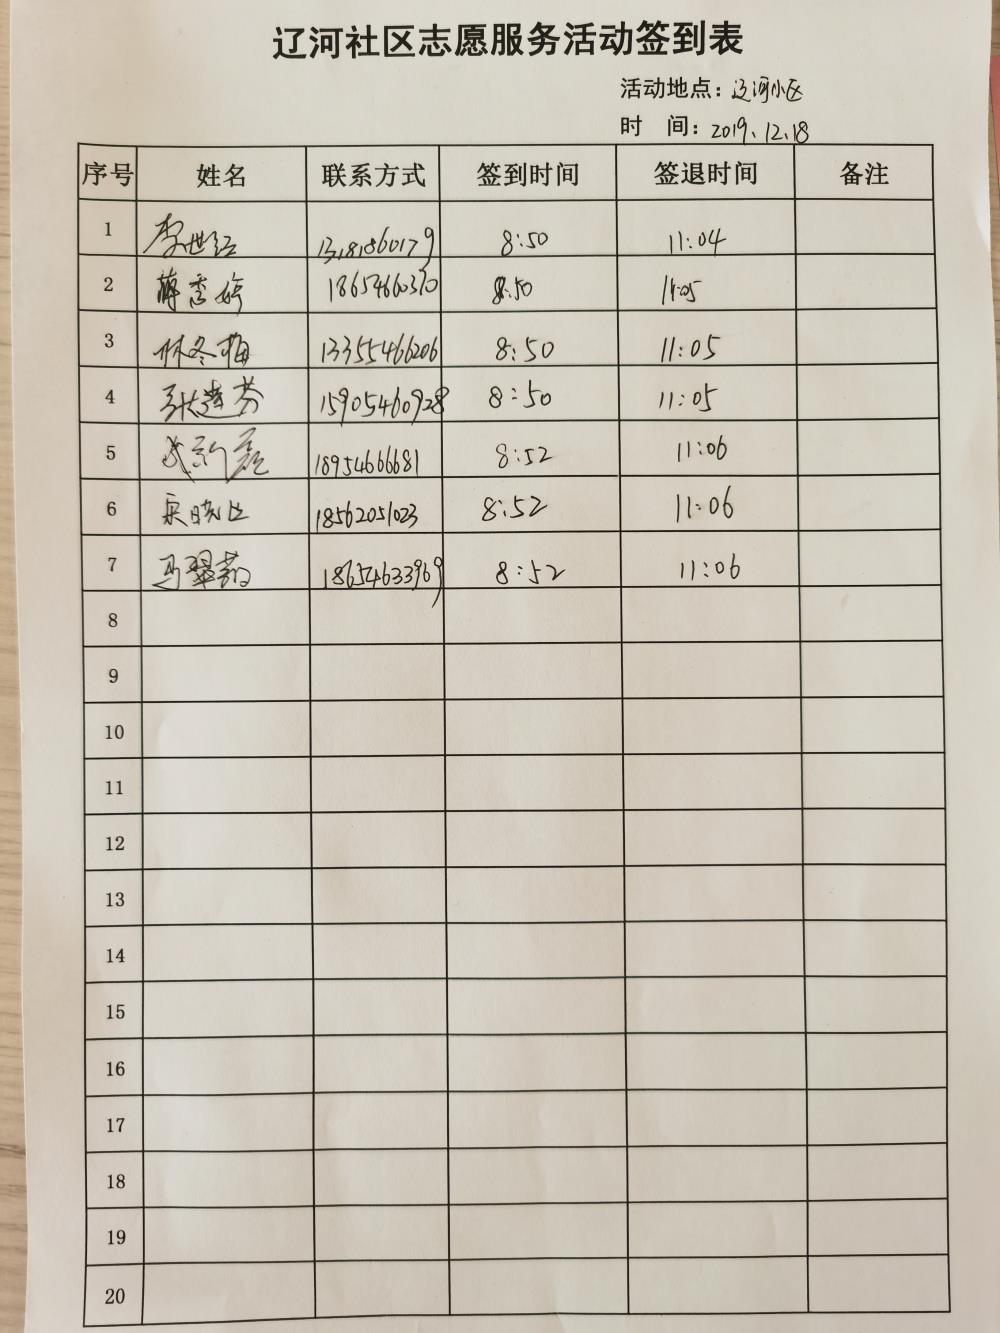 辽河社区志愿服务活动签到表
活动地点：辽河小区
时 间：2019.12.18
序号 姓名 联系方式 签到时间 签退时间 备注
1 李世红 13181860179 8:50 11:04
2 18654660370 8:50 11:05
3 林冬梅 13355466206 8:50 11:05
4 张莲芬 15905460928 8:50 11:05
5 18954666681 8:52 11:06
6 18562051023 8:52 11:06
7 马翠 18654633969 8:52 11:06
8
9
10
11
12
13
14
15
16
17
18
19
20